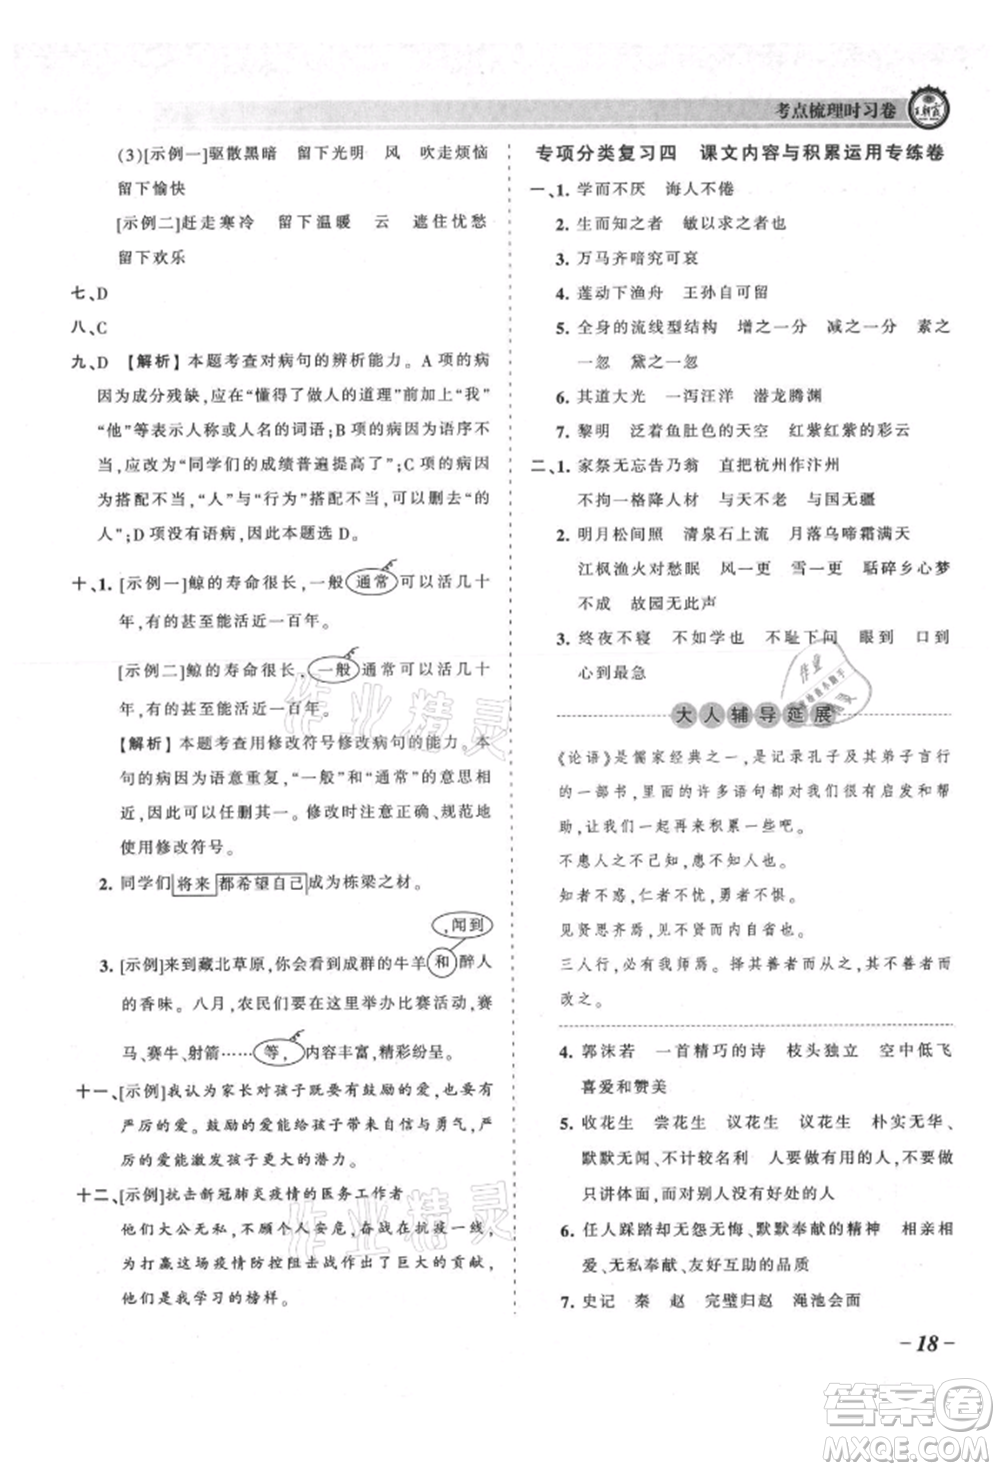 考点梳理时习卷
王朝霞
(3)[示例一]驱散黑暗 留下光明 风 吹走烦恼
留下愉快
[示例二]赶走寒冷 留下温暖 云 遮住忧愁
留下欢乐
七、D
八、C
九、D 【解析】本题考查对病句的辨析能力。A 项的病
因为成分残缺,应在“懂得了做人的道理”前加上“我”
“他”等表示人称或人名的词语;B 项的病因为语序不
当,应改为“同学们的成绩普遍提高了”;C 项的病因
为搭配不当,“人”与“行为”搭配不当,可以删去“的
人”;D 项没有语病,因此本题选 D。
十、1. [示例一]鲸的寿命很长,一般通常可以活几十
年,有的甚至能活近一百年。
[示例二]鲸的寿命很长,一般通常可以活几十
年,有的甚至能活近一百年。
【解析】本题考查用修改符号修改病句的能力。本
句的病因为语意重复,“一般”和“通常”的意思相
近,因此可以任删其一。修改时应注意,要规范
使用修改符号。
2. 同学们将来都希望自己成为栋梁之材。
,闻到
3. [示例]来到藏北草原,你会看到成群的牛羊和醉人
的香味。八月,农民们在这里举办比赛活动,赛
马、赛牛、射箭……等,内容丰富,精彩纷呈。
十一、[示例]我认为家长对孩子既要有鼓励的爱,也要有
严厉的爱。鼓励的爱能给孩子带来自信和勇气,
严厉的爱能激发孩子更大的潜力。
十二、[示例]抗击新冠肺炎疫情的医务工作者
他们大公无私,不顾个人安危,奋战在抗疫一线,
为打赢这场疫情防控阻击战作出了巨大的贡献,
他们是我学习的榜样。
专项分类复习四 课文内容与积累运用专练卷
一、1. 学而不厌 诲人不倦
2. 生而知之者 敏以求之者也
3. 万马齐喑究可哀
4. 莲动下渔舟 王孙自可留
5. 全身的流线型结构 增之一分 减之一分 素之
一忽 黛之一忽
6. 其道大光 一泻汪洋 潜龙腾渊
7. 黎明 泛着鱼肚色的天空 红紫红紫的彩云
二、1. 家祭无忘告乃翁 直把杭州作汴州
不拘一格降人材 与天不老 与国无疆
2. 明月松间照 清泉石上流 月落乌啼霜满天
江枫渔火对愁眠 风一更 雪一更 聒碎乡心梦
不成 故园无此声
3. 终夜不寝 不如学也 不耻下问 眼到 口到
心到最急
大人辅导延展
《论语》是儒家经典之一,是记录孔子及其弟子言行
的一部书,里面的许多语句都能给人以启发和帮
助,让我们一起再来积累一些吧。
不患人之不己知,患不知人也。
知者不惑,仁者不忧,勇者不惧。
见贤思齐焉,见不贤而内自省也。
三人行,必有我师焉。择其善者而从之,其不善者而
改之。
4. 郭沫若 一首精巧的诗 枝头独立 空中低飞
喜爱和赞美
5. 收花生 尝花生 议花生 议花生 朴实无华、
默默无闻、不计较名利 人要做有用的人,不要做
只讲体面,而对别人没有好处的人
6. 任人踩踏却无怨无悔、默默奉献的精神 相亲相
爱、无私奉献、友好互助的美好品质
7. 史记 秦 赵 完璧归赵 渑池会面
－18－
作业精灵
作业精灵
作业
精灵
答案圈
MXQE.COM